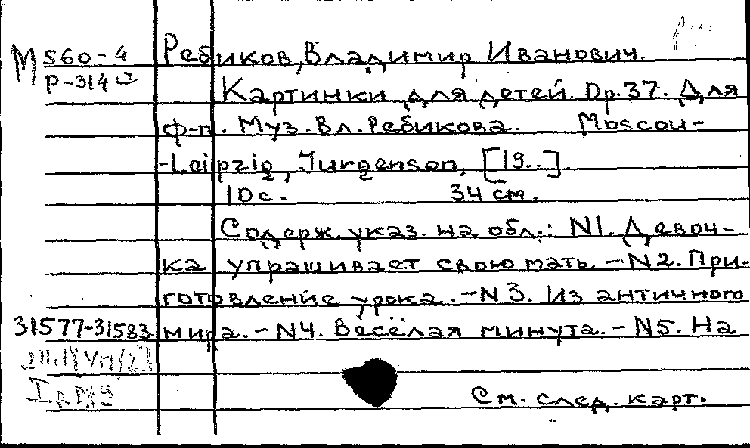 М 560-4 Ребиков, Владимир Иванович.
Р-314
Картинки для детей. Op. 37. Для
ф-п. Муз. Вл. Ребикова. Moscou-
-Leipzig, Jurgenson, [19..].
10 с. 34 см.
Содерж. указ. на обл.: N1. Девоч-
ка упрашивает свою мать. - N2. При-
готовление урока. - N3. Из античного
31577-31583 мира. - N4. Весёлая минута. - N5. На
См. след. карт.